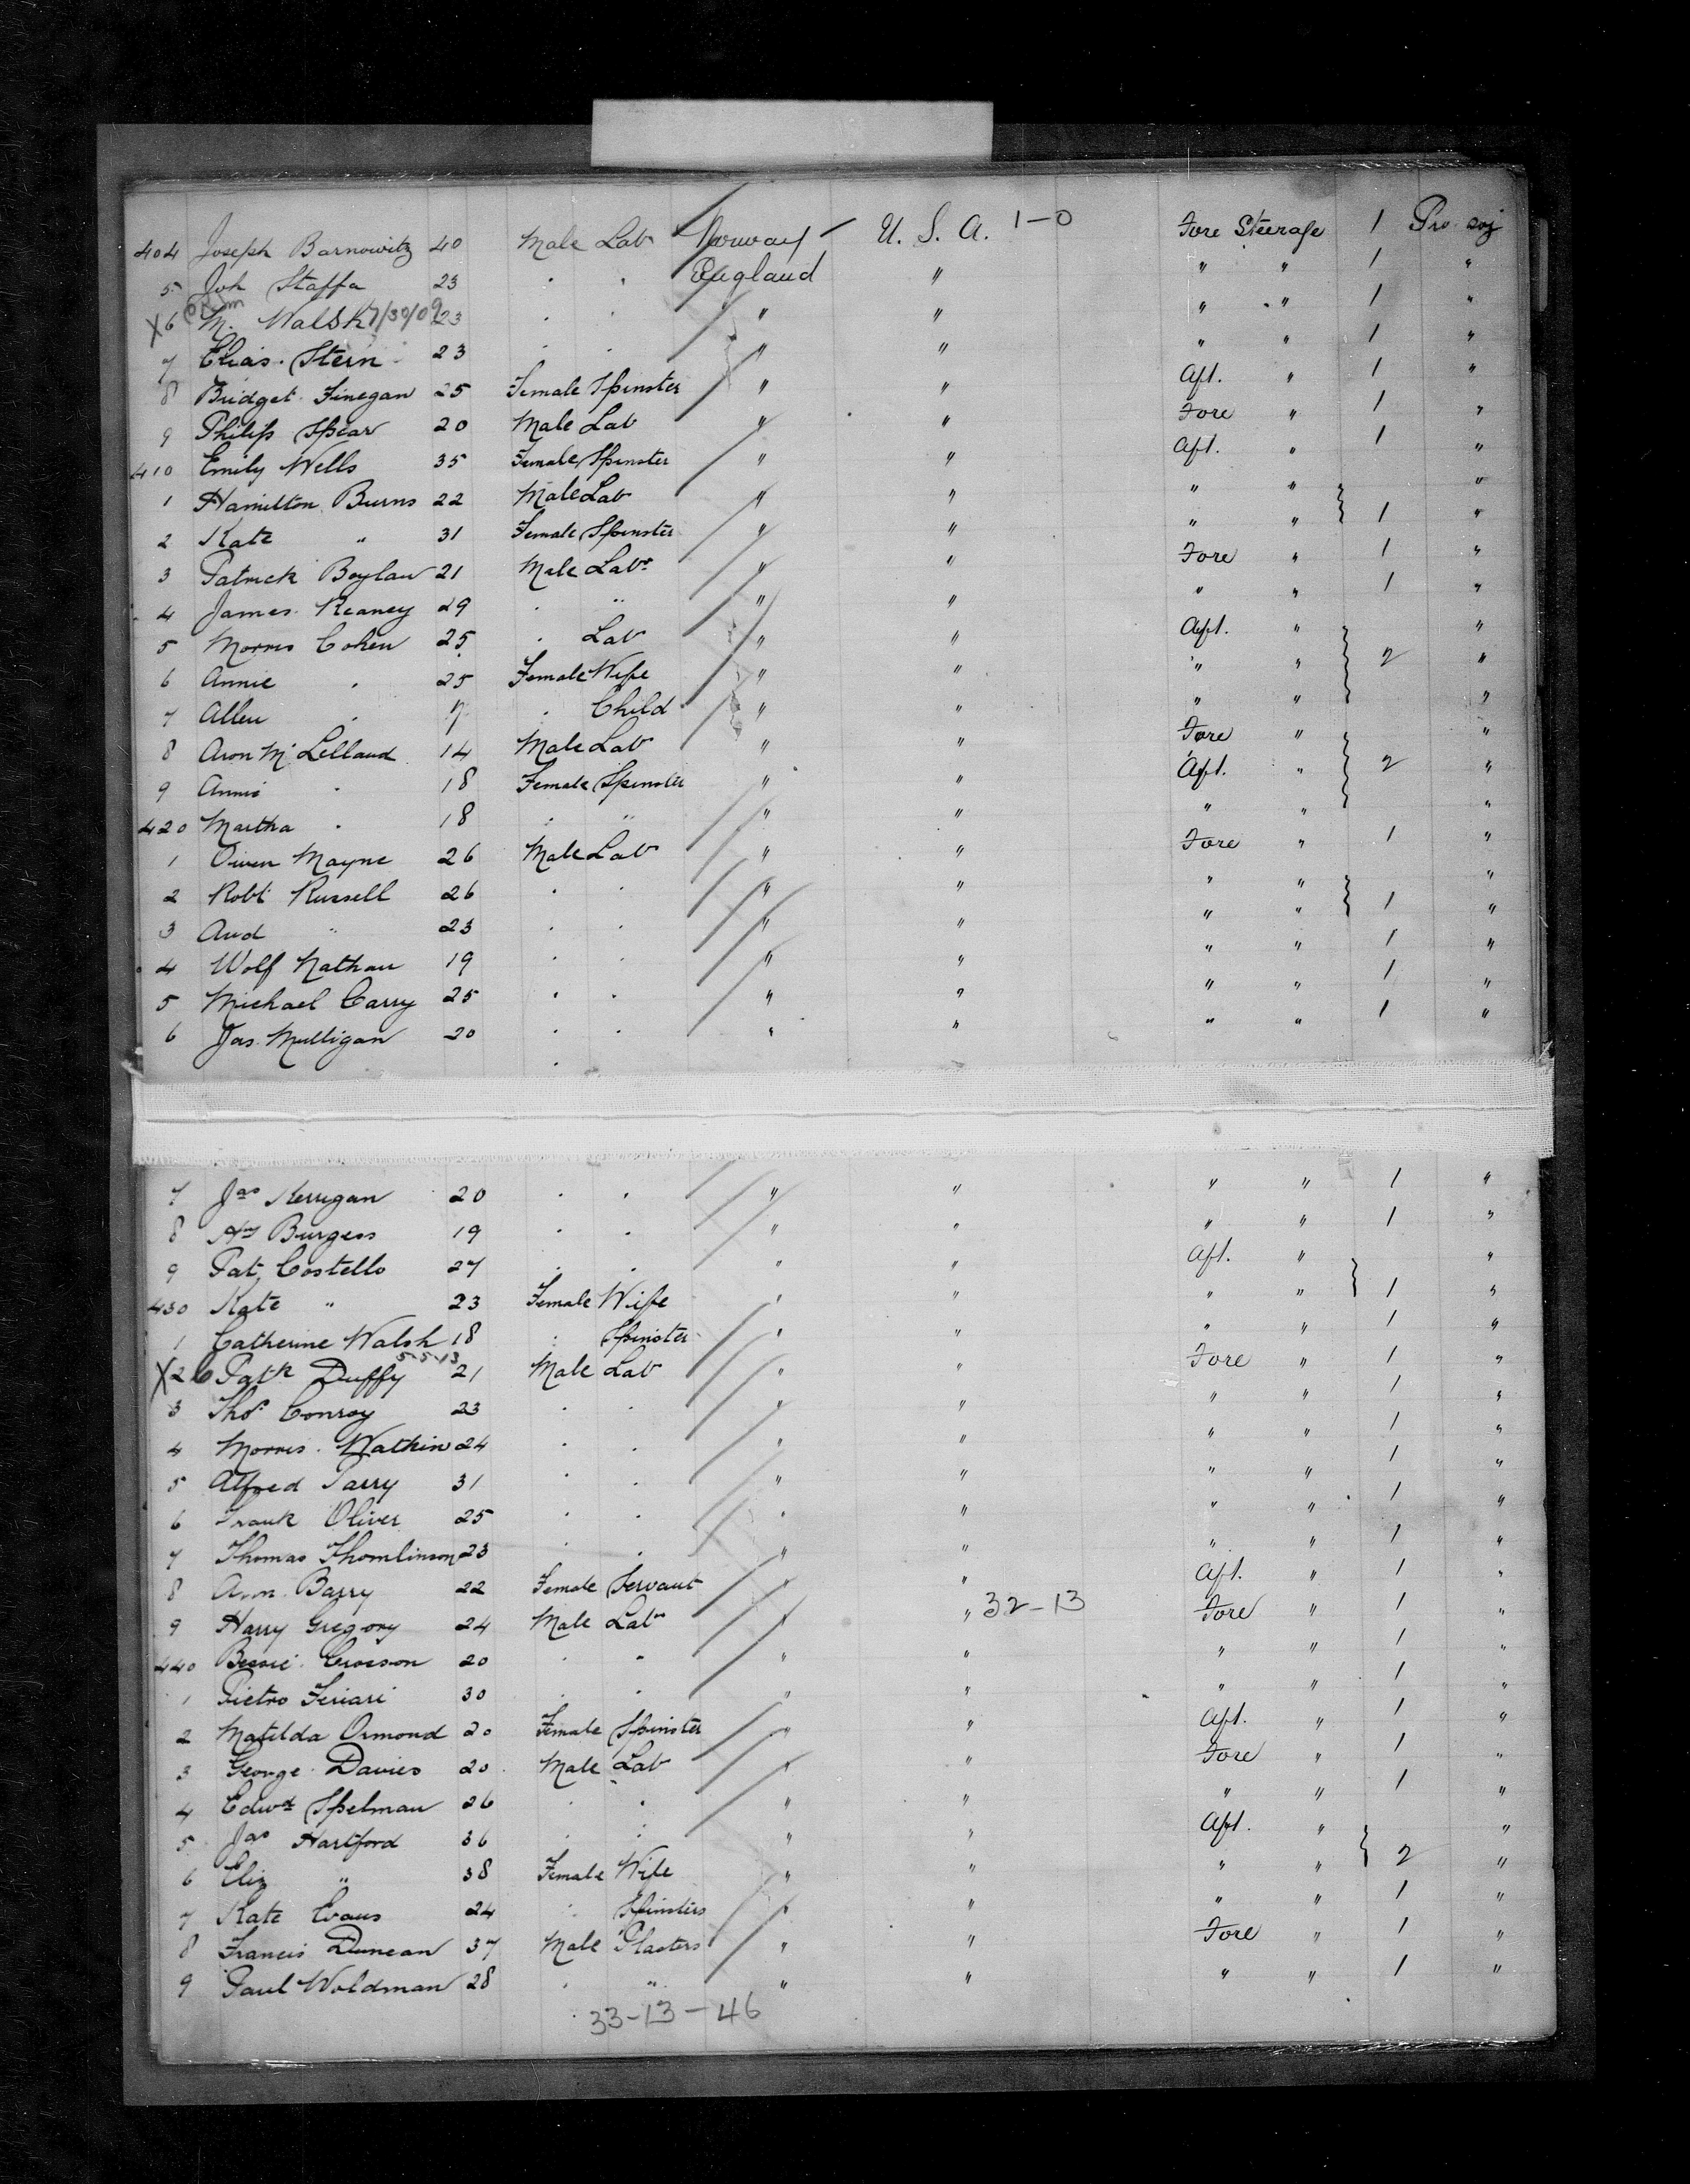 404 Joseph Barnowitz 40 Male Lab Norway U. S. A. 1-0 Fore Steerage 1 Pro. soj
5 Joh Staffa 23 " " England " " " 1 "
X 6 M. Walsh 7/30/09 23 " " " " " " 1 "
7 Elias Stern 23 " " " " " " 1 "
8 Bridget Finegan 25 Female Spinster " " Aft. " 1 "
9 Philip Spear 20 Male Lab " " Fore " 1 "
410 Emily Wells 35 Female Spinster " " Aft. " 1 "
1 Hamilton Burns 22 Male Lab " " " " "
2 Kate " 31 Female Spinster " " " " 1 "
3 Patrick Boylan 21 Male Labr " " Fore " 1 "
4 James Keaney 29 " " " " " " 1 "
5 Morris Cohen 25 " Lab " " Aft. " "
6 Annie " 25 Female Wife " " " " 2 "
7 Allen " 7 " Child " " " " "
8 Aron McLelland 14 Male Lab " " Fore " "
9 Annie " 18 Female Spinster " " Aft. " 2 "
420 Martha " 18 " " " " " " "
1 Owen Mayne 26 Male Lab " " Fore " 1 "
2 Robt Russell 26 " " " " " " "
3 And " 23 " " " " " " 1 "
4 Wolf Nathan 19 " " " " " " 1 "
5 Michael Carry 25 " " " " " " 1 "
6 Jas. Mulligan 20 " " " " " " 1 "
7 Jas Kerrigan 20 " " " " " " 1 "
8 Hy Burgess 19 " " " " " " 1 "
9 Pat. Costello 27 " " " " Aft. " "
430 Kate " 23 Female Wife " " " " 1 "
1 Catherine Walsh 18 " Spinster " " " " 1 "
X 2 C Patk Duffy 5-5-13 21 Male Lab " " Fore " 1 "
3 Thos. Conroy 23 " " " " " " 1 "
4 Morris Wathin 24 " " " " " " 1 "
5 Alfred Parry 31 " " " " " " 1 "
6 Frank Oliver 25 " " " " " " 1 "
7 Thomas Thomlinson 23 " " " " " " 1 "
8 Ann Barry 22 Female Servant " " Aft. " 1 "
9 Harry Gregory 24 Male Labr " " 32-13 Fore " 1 "
440 Bessie Crosson 20 " " " " " " 1 "
1 Pietro Feriari 30 " " " " " " 1 "
2 Matilda Ormond 20 Female Spinster " " Aft. " 1 "
3 George Davies 20 Male Lab " " Fore " 1 "
4 Edwd Spelman 26 " " " " " " 1 "
5 Jas Hartford 36 " " " " Aft. " "
6 Eliz " 38 Female Wife " " " " 2 "
7 Kate Evans 24 " Spinsters " " " " 1 "
8 Francis Duncan 37 Male Plasters " " Fore " 1 "
9 Paul Woldman 28 " " " " " " 1 "
33-13-46